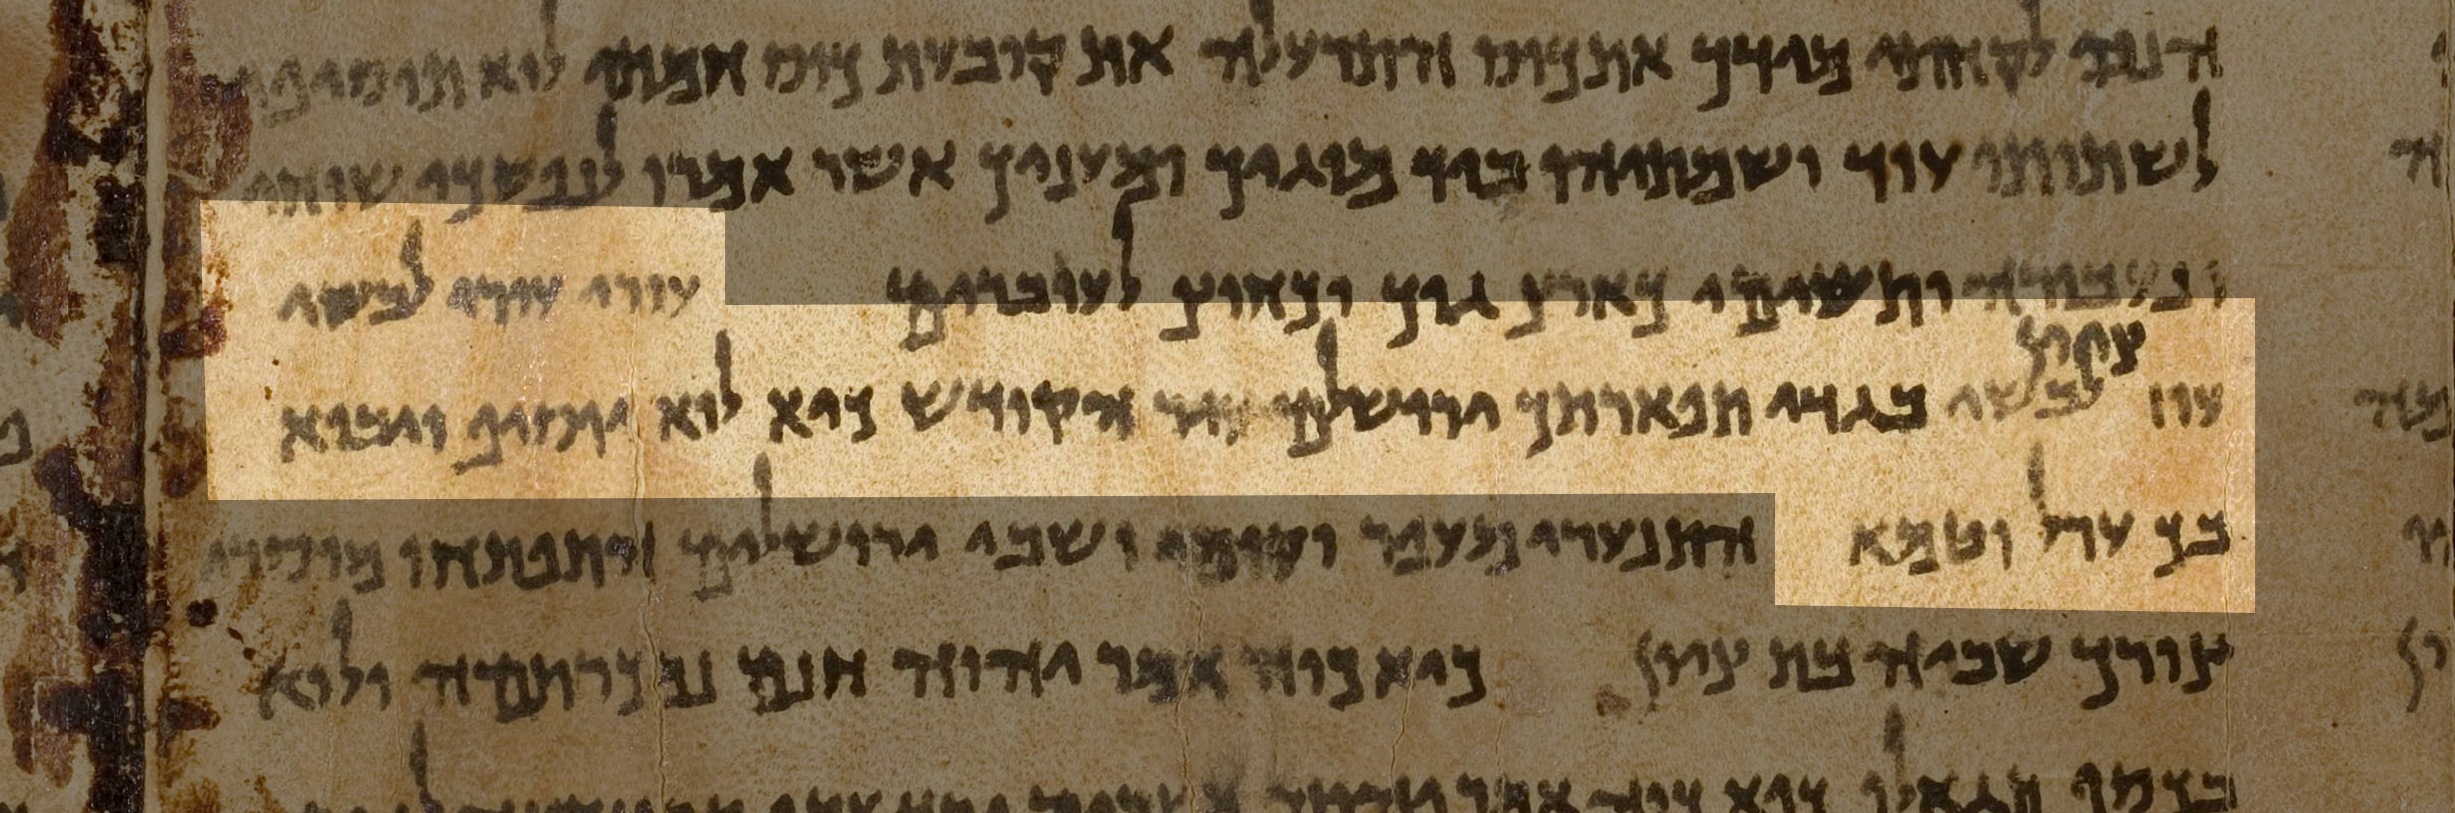 הנה לקחתי מידך את כוס התרעלה את קובעת כוס חמתי לוא תוסיפי
לשתותו עוד ושמתיהו ביד מוגיך ומעניך אשר אמרו לנפשכי שוחי
ונעבורה ותשימי כארץ גוך וכחוץ לעוברים עורי עורי לבשי
ציון
עוז לבשי בגדי תפארתך ירושלים עיר הקודש כיא לוא יוסיף ויבוא
בך ערל וטמא התנערי מעפר וקומי ושבי ירושלים התפתחו מוסרי
צורך שביה בת ציון כיא כוה אמר יהוה חנם נמכרתמה ולוא
בכסף תגאלו כיא כוה אמר